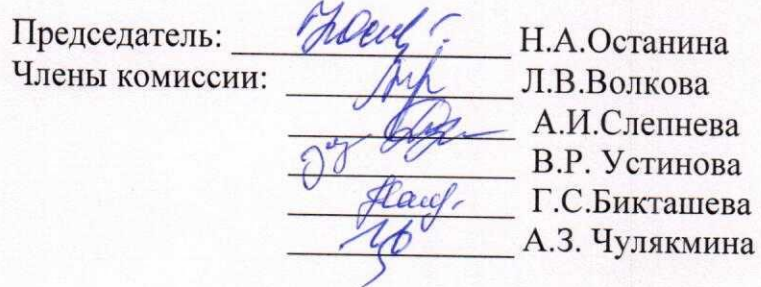 Председатель: Н.А.Останина
Члены комиссии: Л.В.Волкова
А.И.Слепнева
В.Р. Устинова
Г.С.Бикташева
А.З. Чулякмина